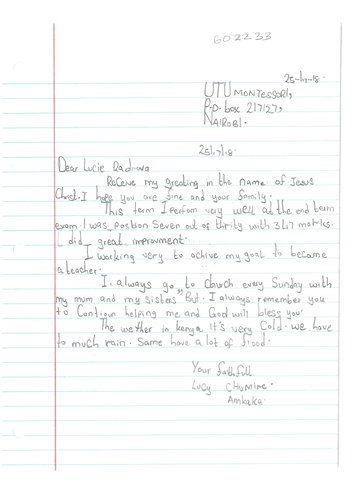 602233
25-17-18.
UTU MONTESSORI,
P.O. box 217127,
NAIROBI.
25/7/18.
Dear Lucie
Receve my greeting in the name of Jesus
Christ. I hope you are fine and your family.
This term I perform very well at the end term
exam. I was position Seven out of thrity with 367 markes.
I did great improvment.
I working very to achive my goal to become
a teacher.
I always go to church every Sunday with
my mum and my sisters But I always remember you
to Contioun helping me and God will bless you.
The wether in kenya It's very Cold. we have
to much rain. Same have a lot of flood.
Your faithfull
Lucy CHUMINE
Amkaka.